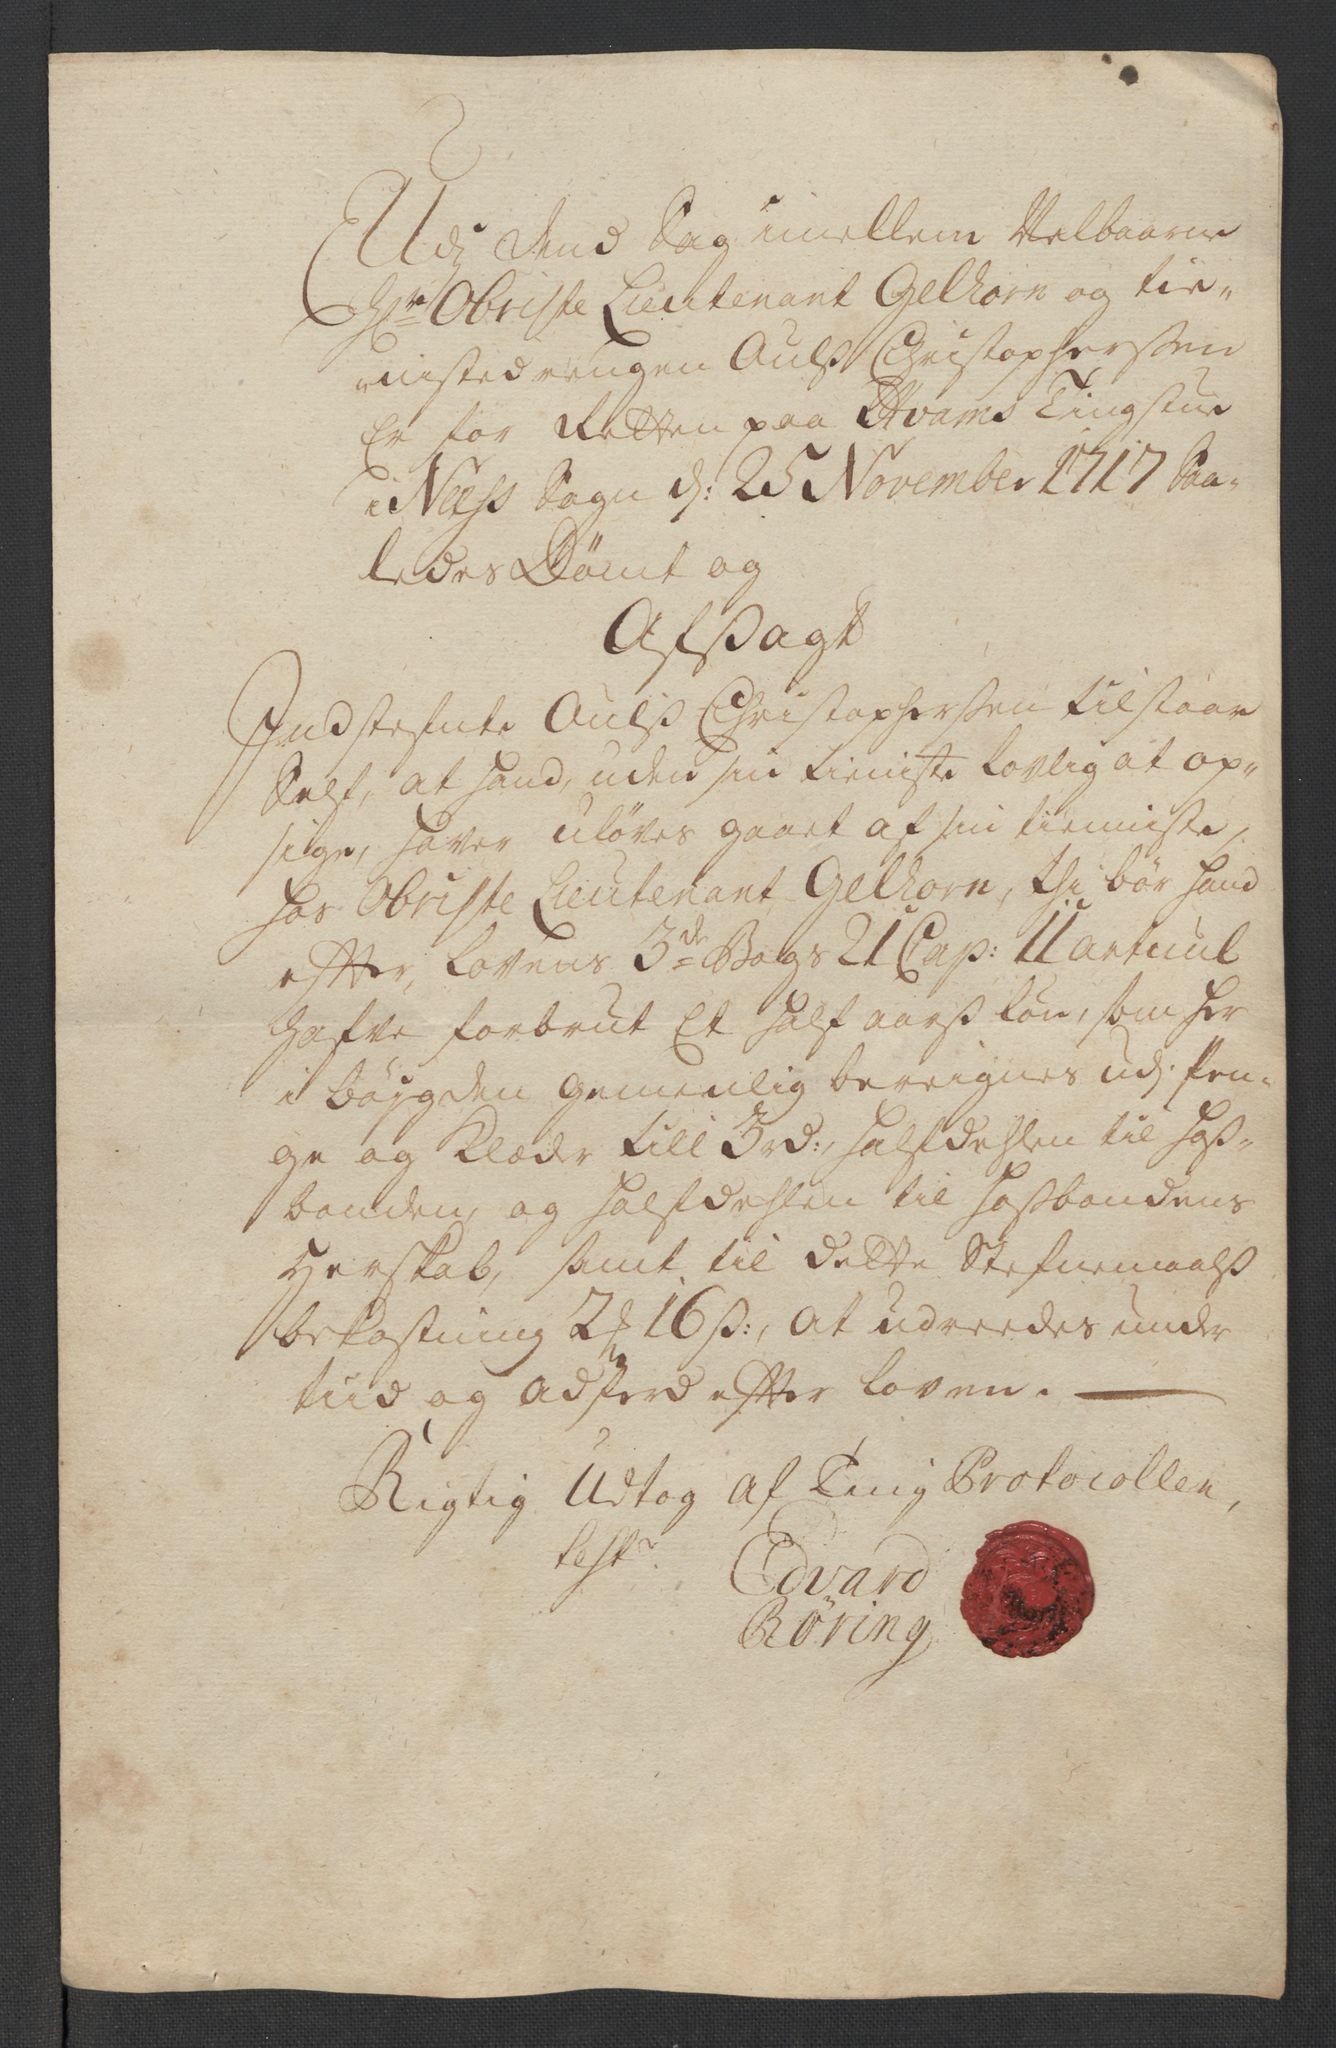 Udj dend Sag imellem Velbaarne
Hr. Obriste Lieutenant Gelkorn og tie-
nistedrengen Oulß Christophersen
Er for Retten paa Hvams Tingstue
i Næss Sogn d: 25 November 1717 Saa-
ledes Dömt og
Afsagt
Indstefnte Oulß Christophersen tilstaar
Self, at hand, uden sin tieniste lovlig at op-
sige, haver ulöves gaaet af sin tienniste,
hos Obriste Lieutenant Gelkorn, thi bör hand
effter, Lovens 3de Bogs 21 Cap: 11 articul
hafve forbrut Et half aarß Lön, som her
i böygden gemeenlig bereignes udj Pen-
ge og Klæder till 3 rd:, halfdehlen til hoß-
bonden, og halfdehlen til hoßbondens
Herskab, samt til dette Stefnemaalß
bekostning 2 16 ß:, at udreedes under
tiid og adferd effter loven.
Rigtig Udtog af Ting Protocollen,
test.
Edvard
Röring